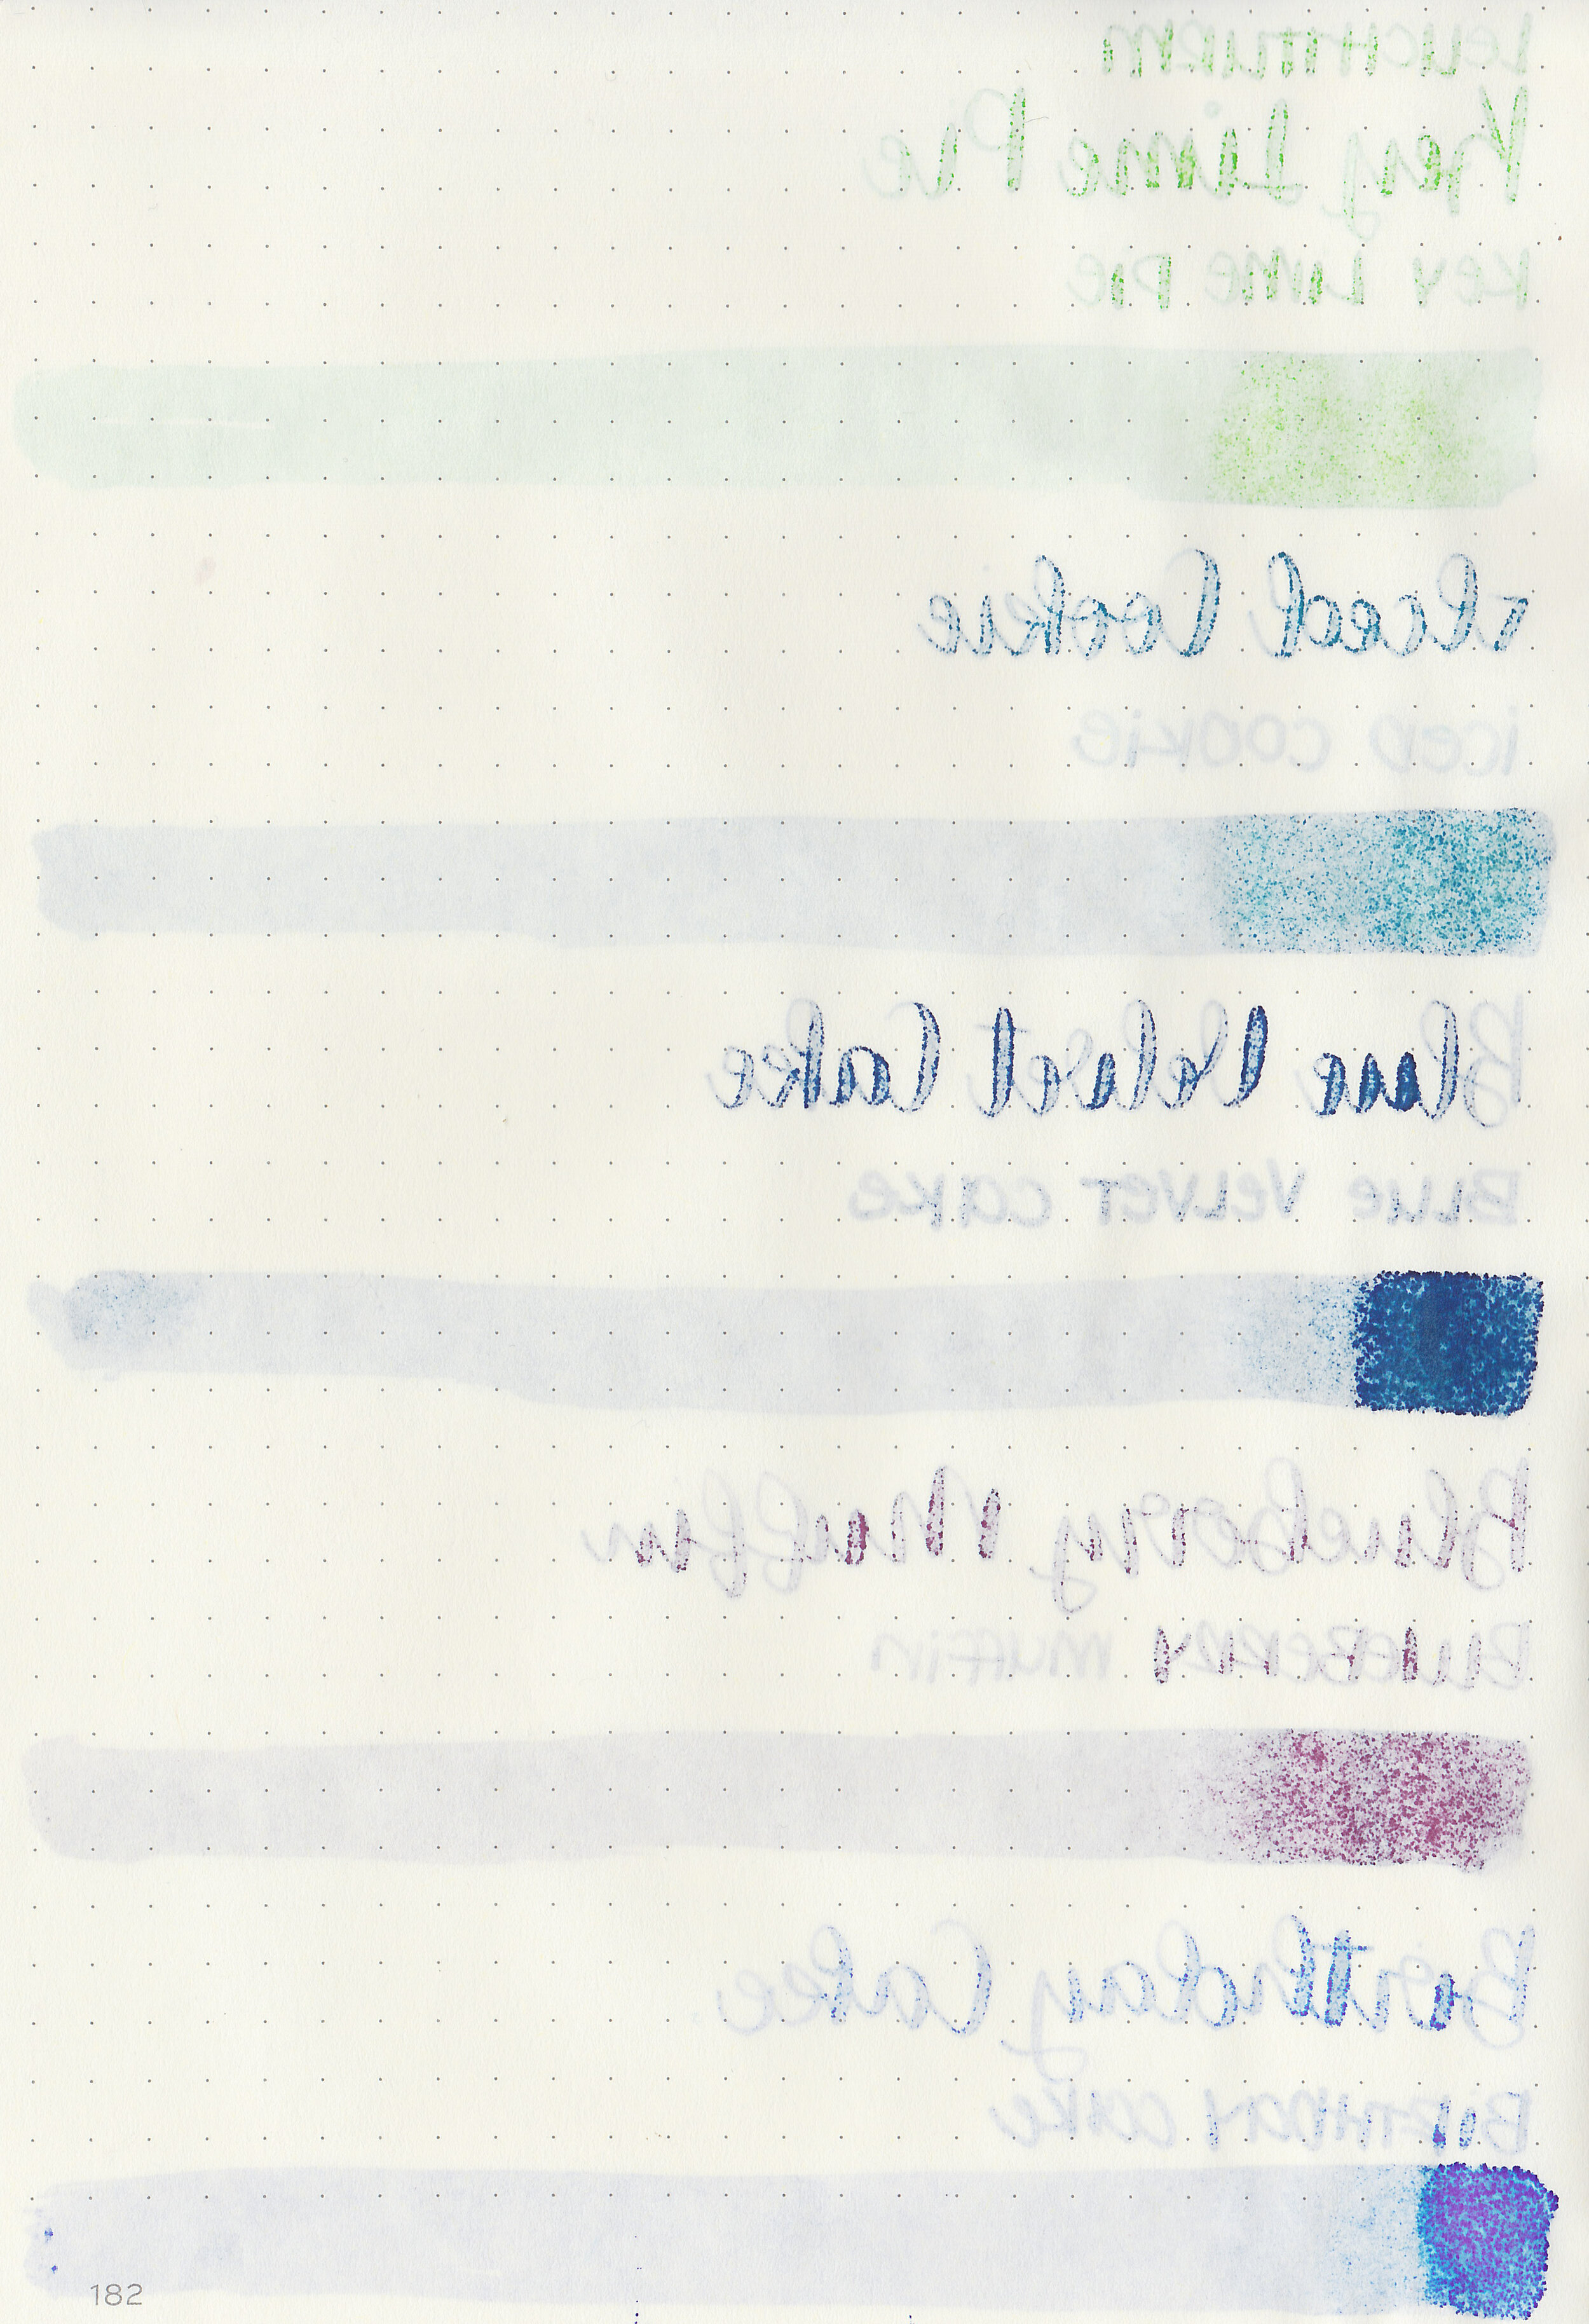 Leuchtturm
Key Lime Pie
Key Lime Pie
Iced Cookie
iced cookie
Blue Velvet Cake
Blue Velvet cake
Blueberry Muffin
Blueberry muffin
Birthday Cake
Birthday cake
182